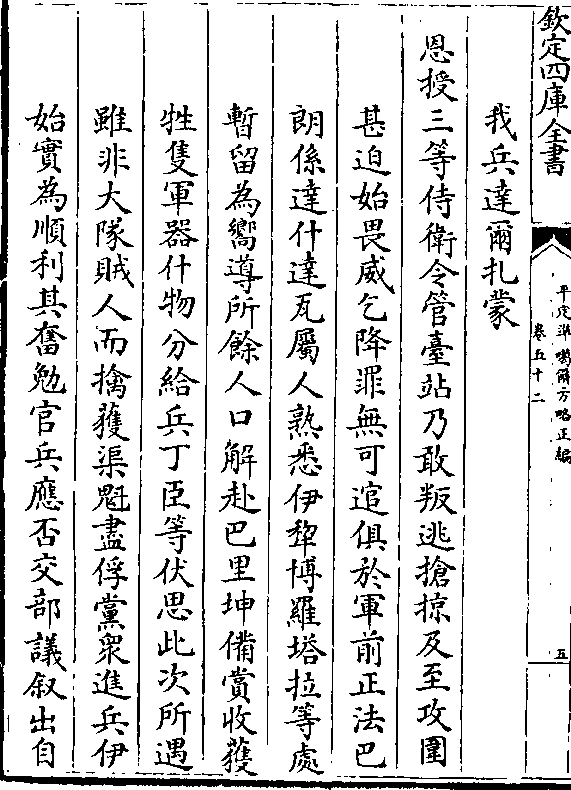 欽定四庫全書
平定準噶爾方略正編
卷五十二
五
我兵達爾扎蒙
恩授三等侍衛令管臺站乃敢叛逃搶掠及至攻圍
甚迫始畏威乞降罪無可逭俱於軍前正法巴
朗係達什達瓦屬人熟悉伊犂博羅塔拉等處
暫留為嚮導所餘人口解赴巴里坤備賞收獲
牲隻軍器什物分給兵丁臣等伏思此次所遇
雖非大隊賊人而擒獲渠魁盡俘黨衆進兵伊
始實為順利其奮勉官兵應否交部議叙出自